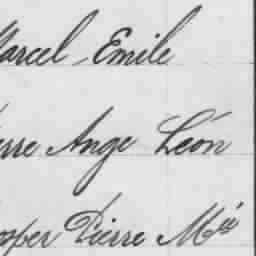 Marcel Emile
erre Ange Léon
osper Pierre Mie